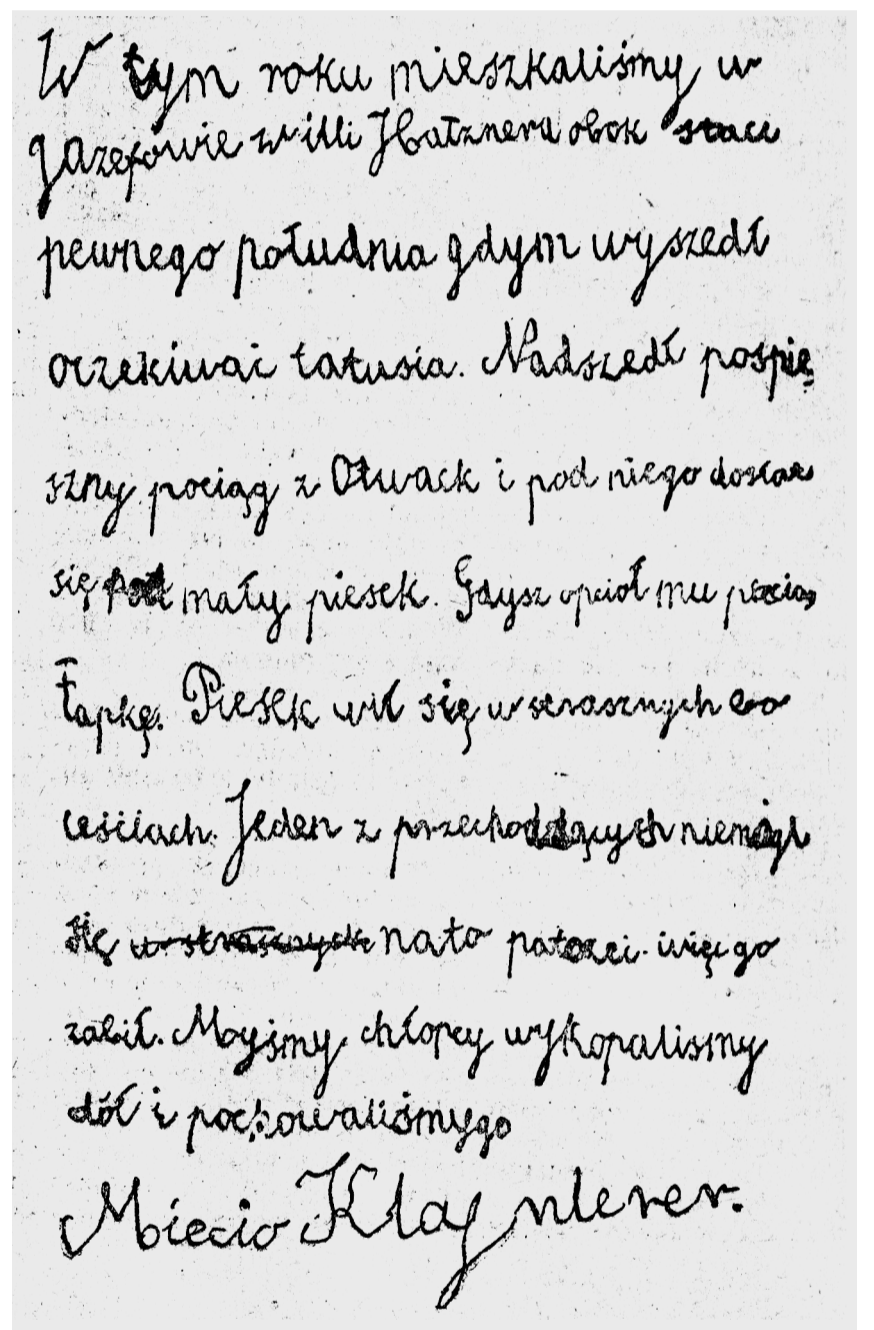 W tym roku mieszkaliśmy w
Jązefowie willi Hbatznera obok staci
pewnego południa gdym wyszedł
oczekiwać tatusia. Nadszedł pospie
szny pociąg z Otwack i pod niego dostał
się mały piesek. Gdysz opcioł mu pociąg
łapkę. Piesek wił się w strasznych bo
leściach. Jeden z przechodzących niemógł
się nato patrzeć więc go
zabił. Myśmy chłopcy wykopalismy
dół i pochowaliśmygo
Miecio Klajnlerer.